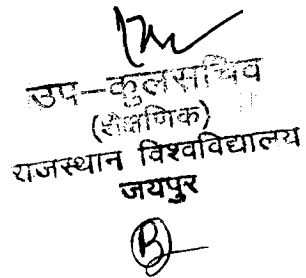 उप-कुलसचिव
(शैक्षणिक)
राजस्थान विश्वविद्यालय
जयपुर
B